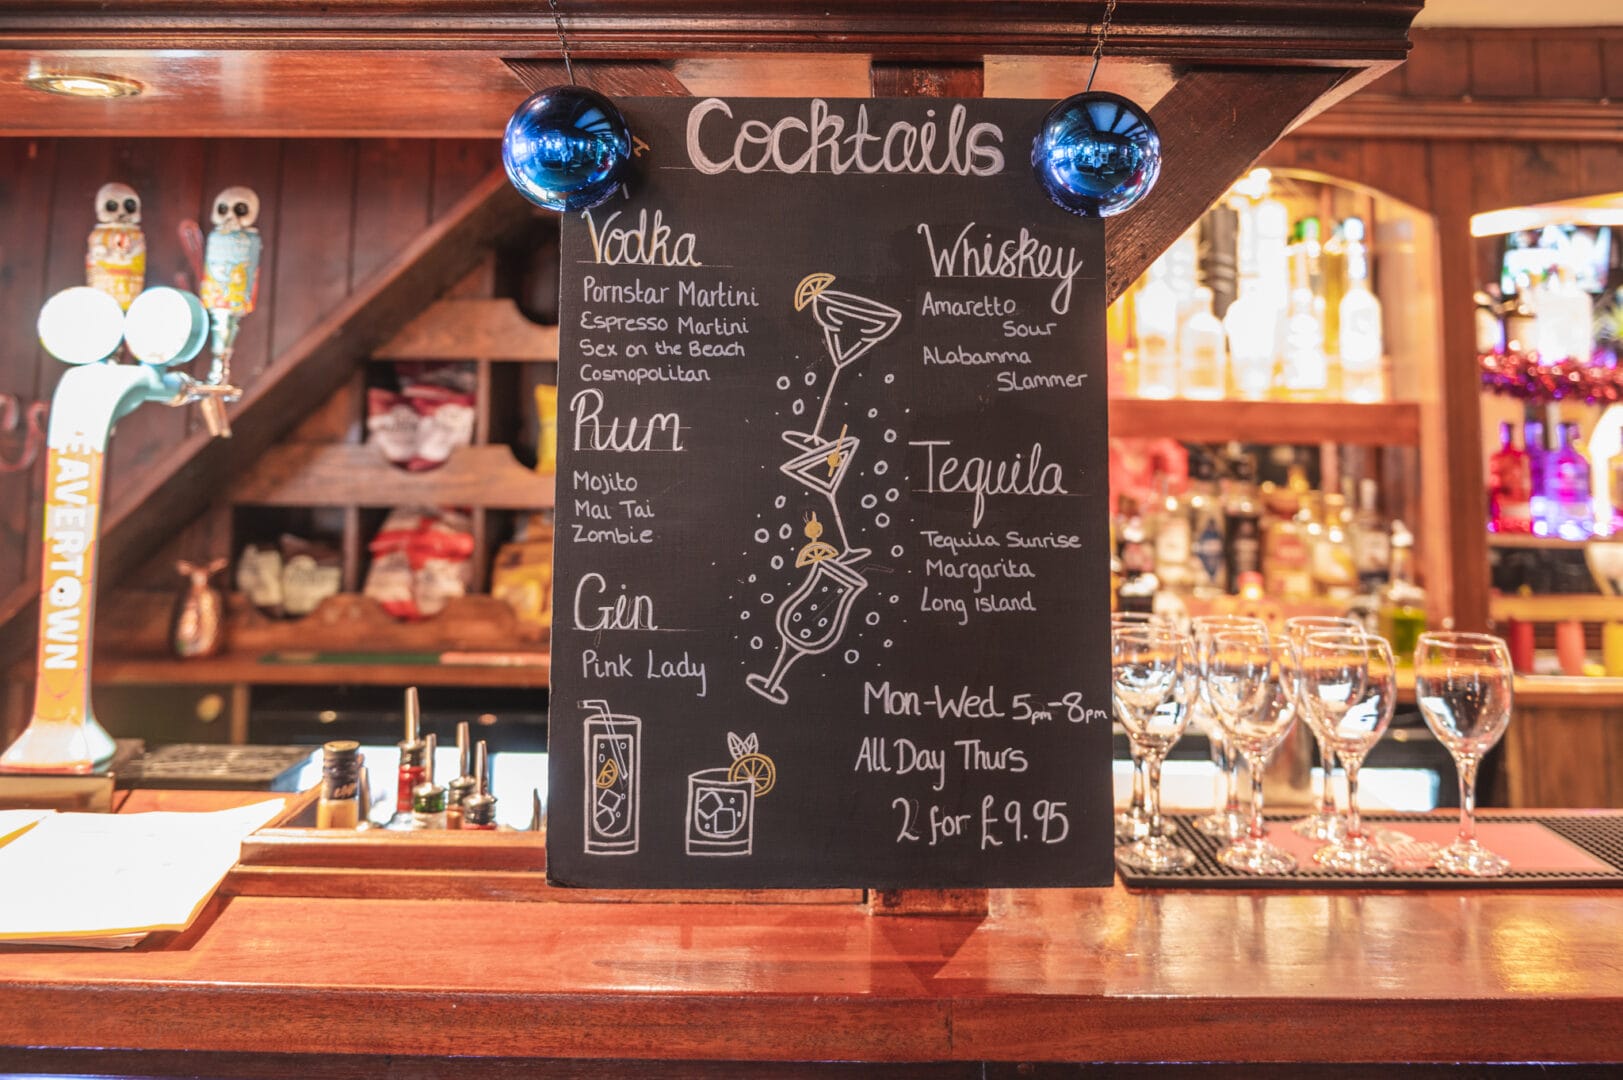 Cocktails
Vodka
Pornstar Martini
Espresso Martini
Sex on the Beach
Cosmopolitan
Rum
Mojito
Mai Tai
Zombie
Gin
Pink Lady
Whiskey
Amaretto
Sour
Alabamma
Slammer
Tequila
Tequila Sunrise
Margarita
Long island
Mon-Wed 5pm-8pm
All Day Thurs
2 for £9.95
EAVERTOWN